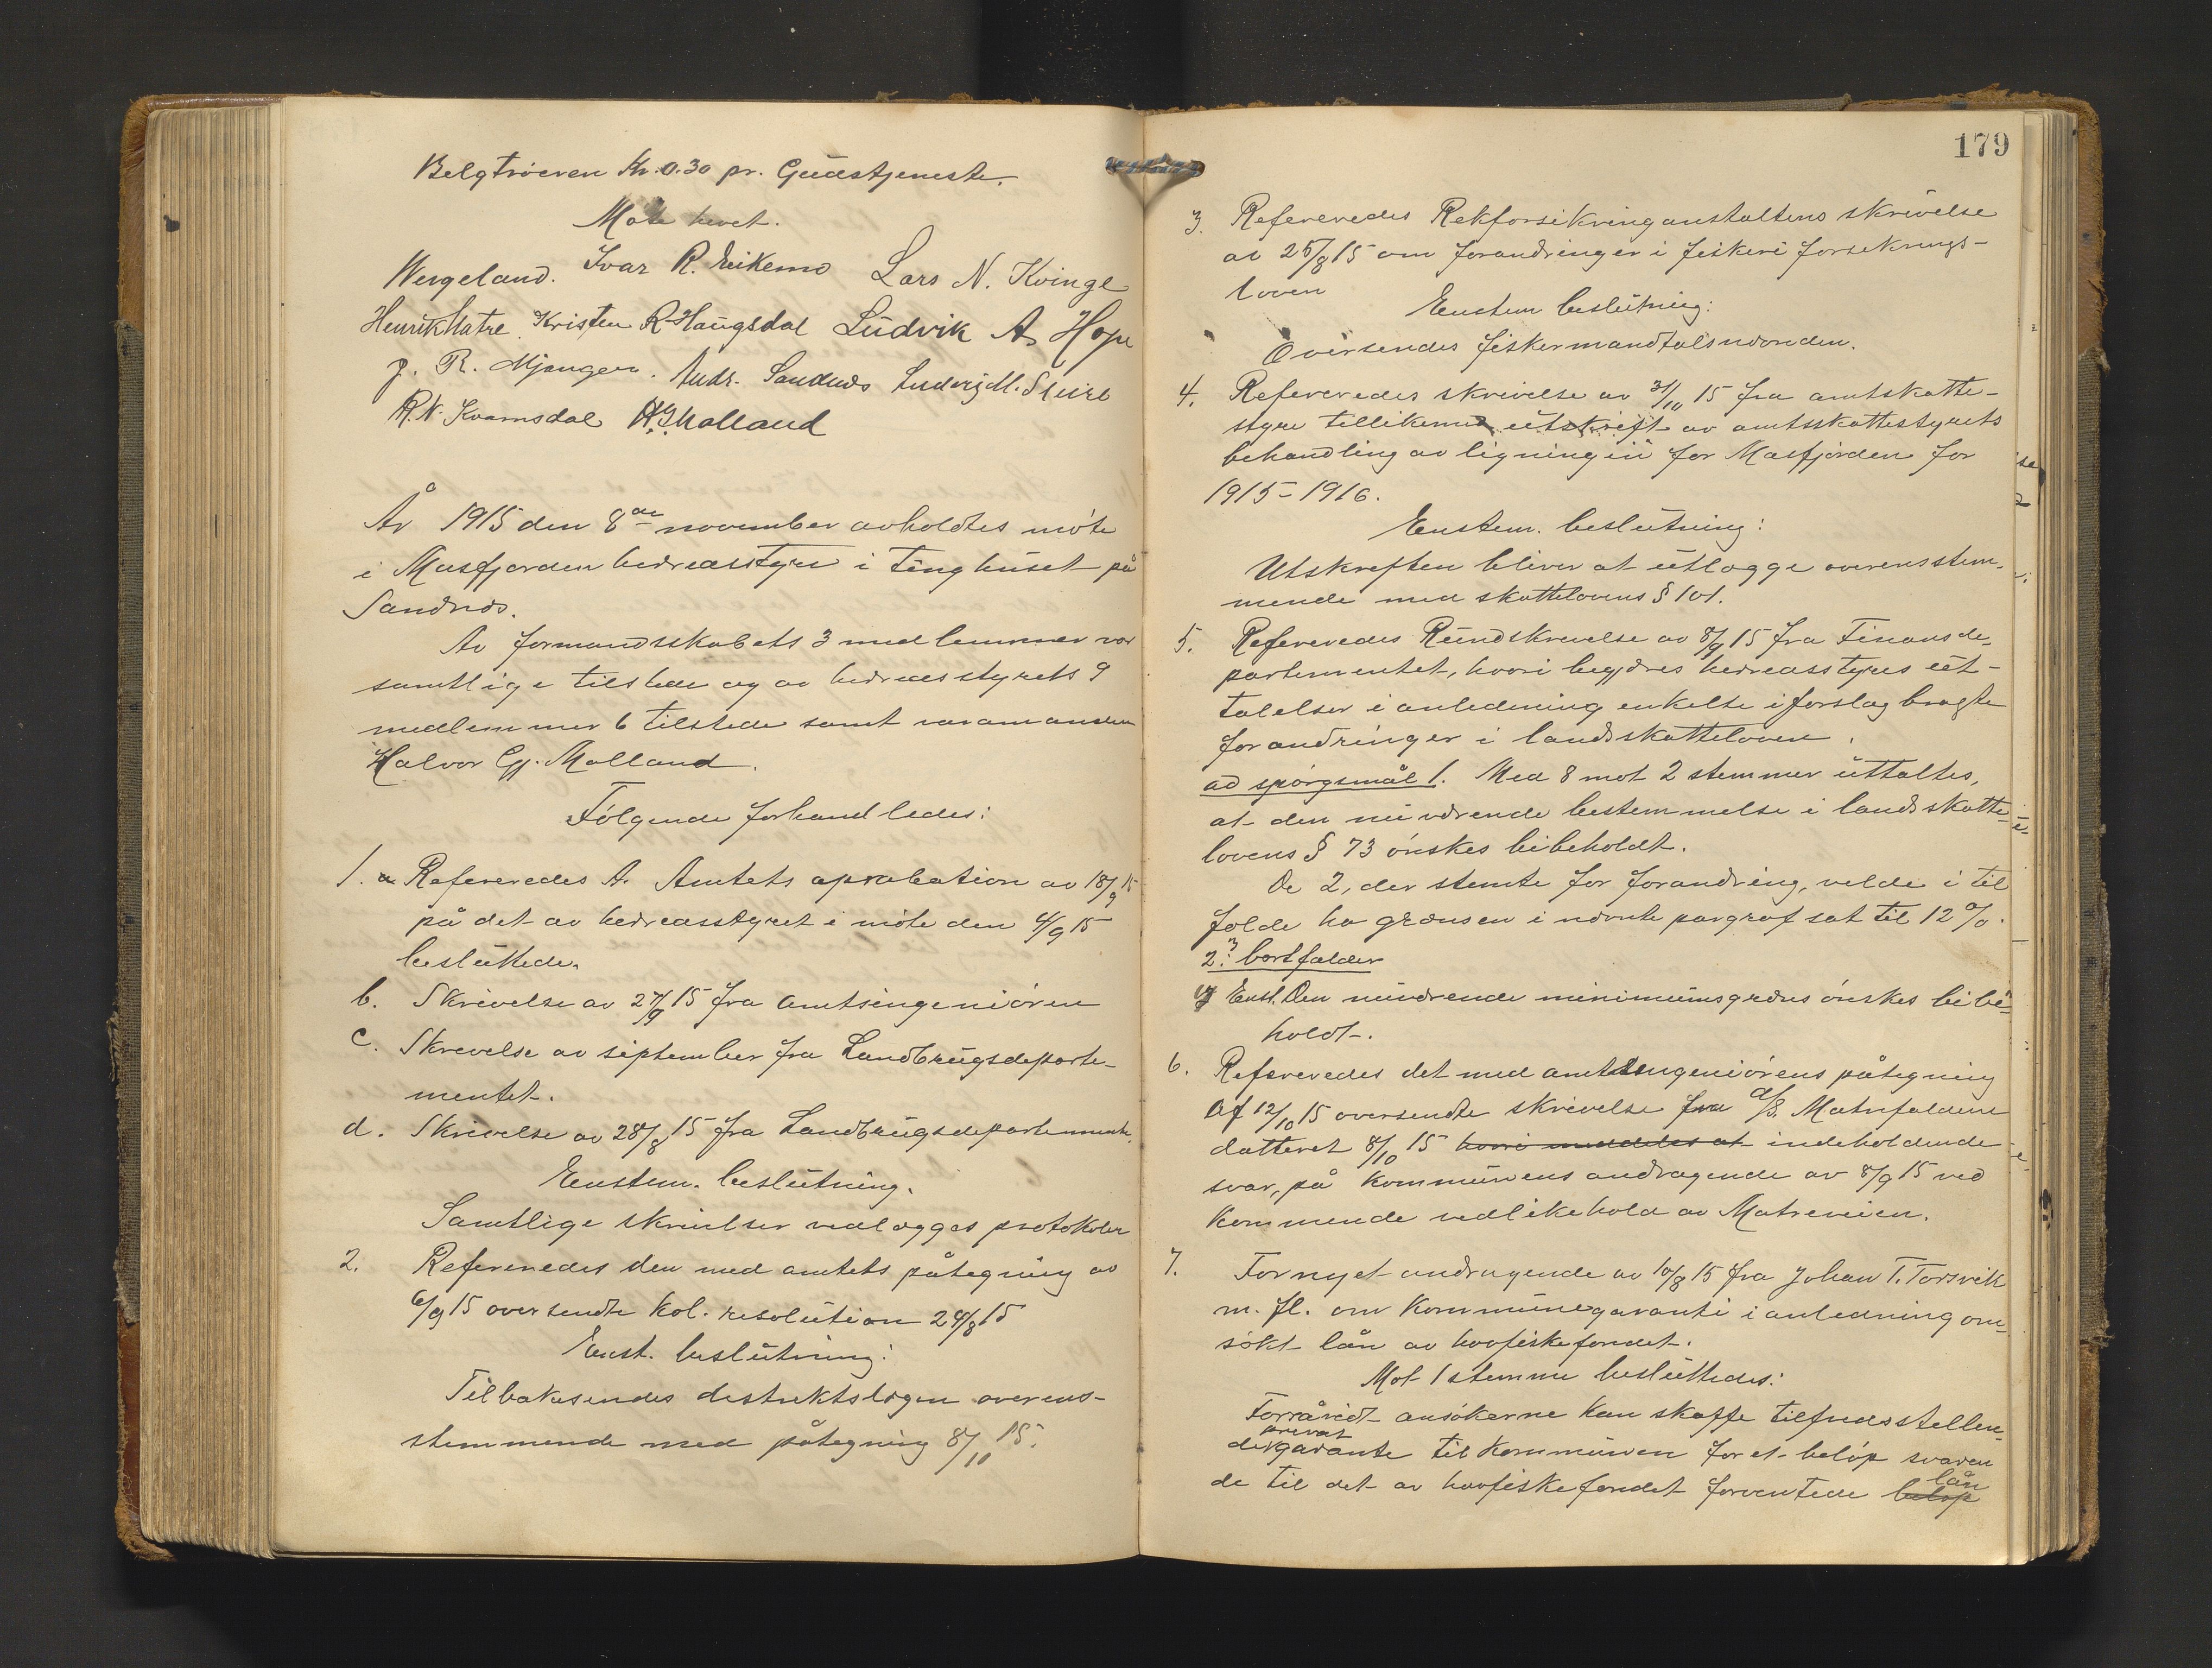 Belgtrøeren Kr. 0.30 pr. Gudstjeneste.
Møte hevet.
Wergeland. Ivar R. Eikemo Lars N. Kvinge
Henrik Matre Kristen R. Haugsdal Ludvik A. Hope
J. R. Mjanger. Andr. Sandnes Ludvig M. Sleire
R. N. Kvamsdal H. G. Molland
År 1915 den 8de november avholdtes møte
i Masfjorden herredsstyre i tinghuset på
Sandnes.
Av formandsskabets 3 medlemmer var
samtlige tilstede og av herredsstyrets 9
medlemmer 6 tilstede samt varamanden
Halvor Gj. Molland.
Følgende forhandledes:
1. a Refereredes A. Amtets aprobation av 18/9 15
på det av herredsstyret i møte den 4/9 15
besluttede.
b. Skrivelse av 27/9 15 fra amtsingeniøren
c. Skrivelse av september fra Landbrugsdeparte-
mentet.
d. Skrivelse av 28/8 15 fra Landbrugsdepartementet.
Enstem. beslutning.
Samtlige skrivelser vedlægges protokolen
2. Refereredes den med amtets påtegning av
6/9 15 oversendte kol. resolution 24/8 15
Enst. beslutning:
Tilbakesendes distriktslægen overens-
stemmende med påtegning 8/10 15.
179
3. Refereredes Rikforsikringanstaltens skrivelse
av 25/8 15 om forandringer i fiskeri forsekrings-
loven
Enstem beslutning:
Oversendes fiskermandtalsnevnden.
4. Refereredes skrivelse av 3/10 15 fra amtskatte-
styre tillikemed utskrift av amtsskattestyrets
behandling av ligningen for Masfjorden for
1915-1916.
Enstem. beslutning:
Utskreften bliver at utlægge overensstem-
mende med skattelovens § 101.
5. Refereredes Rundskrivelse av 8/9 15 fra Finansde-
partementet, hvori begjæres herredsstyres ut-
talelser i anledning enkelte i forslag bragte
forandringer i landsskatteloven.
ad spørgsmål 1. Med 8 mot 2 stemmer uttaltes,
at den nuværende bestemmelse i landsskatte-
lovens § 73 ønskes bibeholdt.
De 2, der stemte for forandring, vilde i til
fælde ha grænsen i nævnte pargraf sat til 12 %.
2. bortfalder
3 Enst. Den nuværende minimumsgrens ønskes bibe-
holdt.
6. Refereredes det med amtsingeniørens påtegning
af 12/10 15 oversendte skrivelse fra A/S. Matrefaldene
datteret 8/10 15 hvori meddeles at indeholdende
svar, på kommunens andragende av 8/9 15 ved
kommende vedlikehold av Matreveien.
7. Fornyet andragende av 10/8 15 fra Johan T. Torsvik
m. fl. om kommunegaranti i anledning om-
søkt lån av havfiskefondet.
Mot 1 stemme besluttedes:
Forsåvidt ansøkerne kan skaffe tilfredsstillen-
privat
de garante til kommunen for et beløp svaren
lån
de til det av havfiskefondet forventede beløp